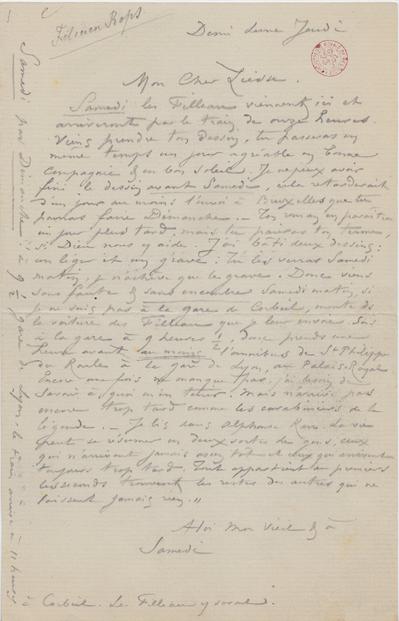 Félicien Rops
Demi lune Jeudi
Mon Cher Liesse.
Samedi les Filleau viennent ici et
arriveront par le train de onze heures.
Viens prendre ton dessin, tu passeras en
même temps un jour agréable en bonne
Compagnie & en bon Soleil. Je ne peux avoir
fini le dessin avant Samedi, cela retarderait
d'un jour au moins l'envoi à Bruxelles que tu
pourras faire Dimanche. — Ton roman paraîtra
un jour plus tard, mais tu pourras
si Dieu nous y aide. J'ai bâti deux dessins:
un léger et un grave: Tu les verras Samedi
matin, je n'achève que le grave. Donc viens
sans faute & sans encombre Samedi matin, si
je ne suis pas à la gare de Corbeil, monte ds
la voiture des Filleau que je leur envoie. Sois
à la gare à 9 heures ½ donc prends une
heure avant au moins l'omnibus de St Philippe
du Roule à la gare de Lyon, au Palais-Royal
Encore une fois ne manque pas, j'ai besoin de
savoir à quoi m'en tenir. Mais n'arrive pas
encore trop tard comme les carabiniers de la
légende. — Je lis dans Alphonse Karr: La vie
peut se résumer en deux sortes de gens, ceux
qui n'arrivent jamais assez tôt et ceux qui arrivent
toujours trop tard. Tout appartient aux premiers
les seconds trouvent les restes des autres qui ne
laissent jamais rien."
A toi Mon vieil & à
Samedi
à Corbeil. Les Filleau y seront.
Samedi pas Dimanche à 9 ½ gare de Lyon, le train arrive à 11 heures